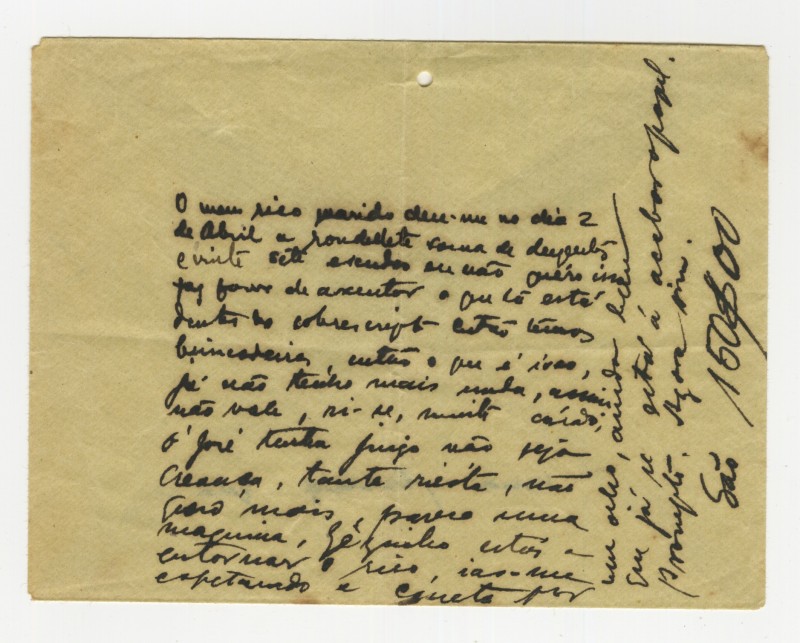 O meu rico marido deu-me no dia 2
de Abril a rondellete soma de duzentos
e vinte sete escudos eu não quero isso
faz favor de axentar o que lá está
dentro do sobrescripto então temos
brincadeira, então o que é isso,
já não tenho mais nada, assim
não vale, ri-se, muito caído,
ó José tenha juizo não seja
creança, tante riésta, não
quero mais, parece uma
maquina, Zézinho estás a
entornar o rico, ias-me
espetando a caneta por
um olho, ainda bem
que já se está a acabar o papel.
Prompto. Agora sim.
São 150$00